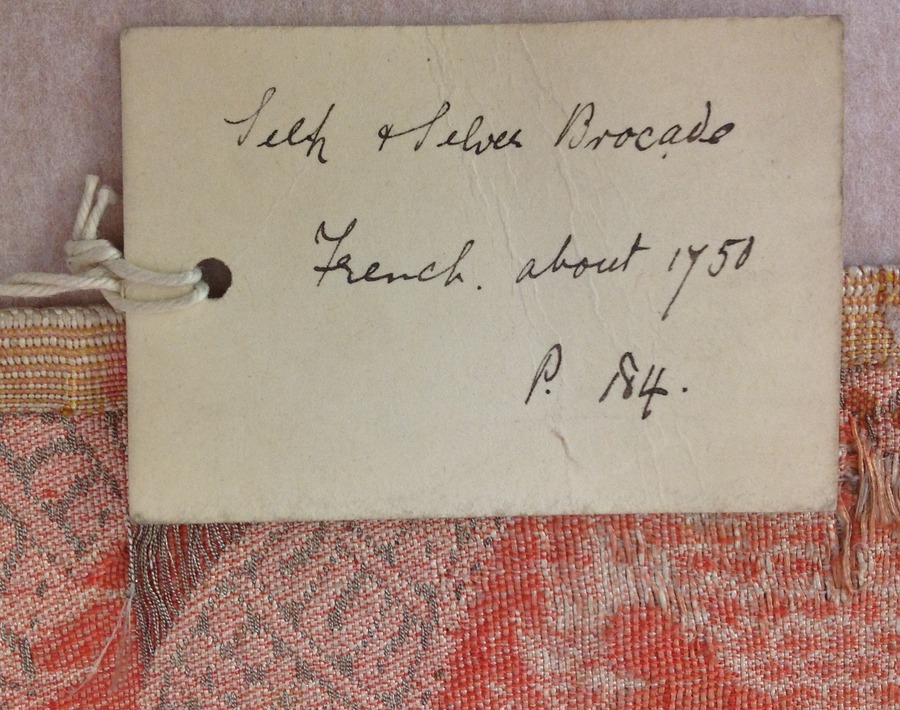 Silk & Silver Brocade
French. about 1750
P. 184.